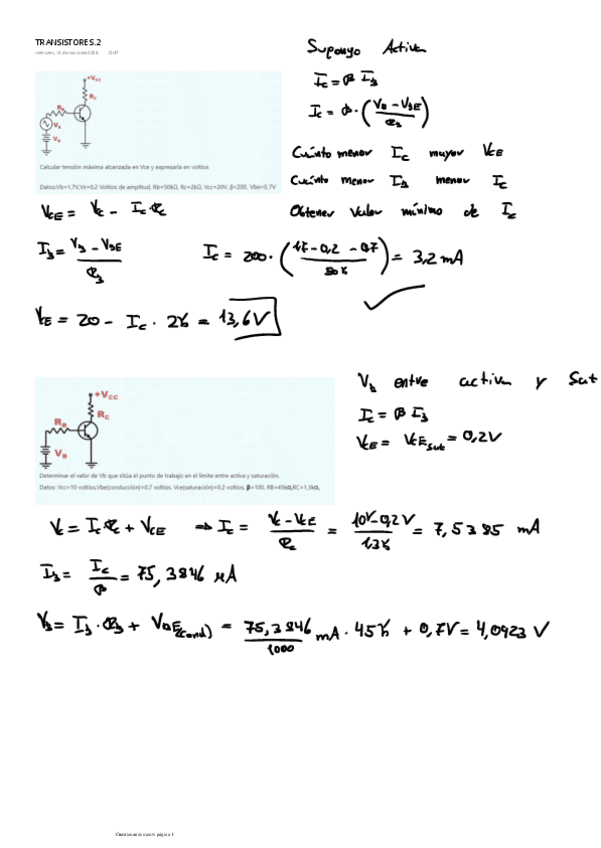 TRANSISTORES.2
+Vcc
Rc
Rb
Vs
VB
Calcular tensión máxima alcanzada en Vce y expresarla en voltios
Datos:Vb=1,7V,Vs=0,2 Voltios de amplitud, Rb=50kΩ, Rc=2kΩ, Vcc=20V, β=200, Vbe=0,7V
Supongo Activa
Ic = β I_B
Ic = β · (V_B - V_BE / R_B)
Cuánto menor Ic mayor V_CE
Cuánto menor I_B menor Ic
Obtener valor mínimo de Ic
V_CE = Vc - Ic·Rc
I_B = V_B - V_BE / R_B
Ic = 200 · (1,7 - 0,2 - 0,7 / 50k) = 3,2 mA
V_CE = 20 - Ic · 2k = 13,6V
+Vcc
Rc
RB
VB
Determinar el valor de Vb que sitúa el punto de trabajo en el límite entre activa y saturación.
Datos: Vcc=10 voltios,Vbe(conducción)=0,7 voltios, Vce(saturación)=0,2 voltios, β=100, RB=45kΩ,RC=1,3kΩ,
V_b entre activa y Sat
Ic = β I_B
V_CE = V_CE sat = 0,2V
Vc = Ic Rc + V_CE ⇒ Ic = Vc - V_CE / Rc = 10V - 0,2V / 1,3k = 7,5385 mA
I_B = Ic / β = 75,3846 μA
V_B = I_B · R_B + V_BE(cond) = 75,3846 / 1000 mA · 45k + 0,7V = 4,0923 V